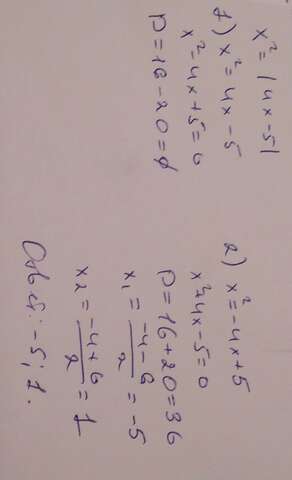 x² = |4x-5|
1) x² = 4x-5
x²-4x+5=0
D=16-20=∅
2) x²=-4x+5
x²+4x-5=0
D=16+20=36
x₁ = \frac{-4-6}{2} = -5
x₂ = \frac{-4+6}{2} = 1
Ответ: -5; 1.